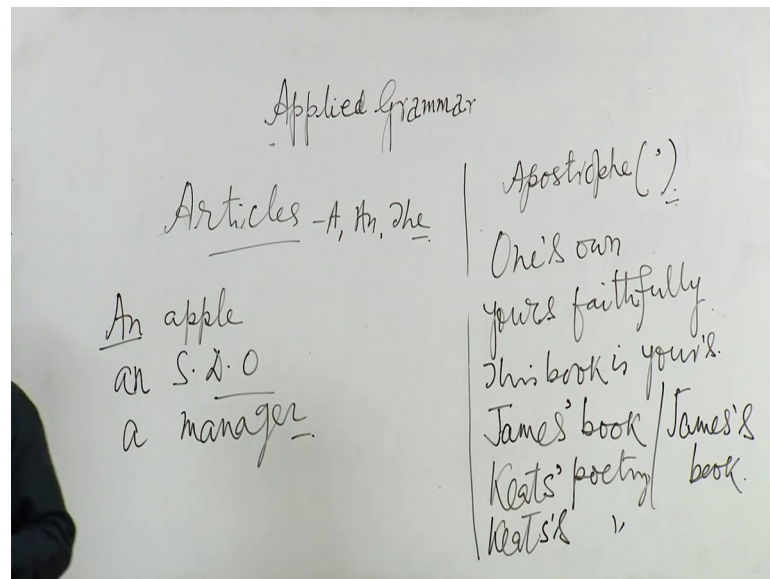 Applied Grammar
Articles - A, An, The
An apple
an S.D.O
a manager.
Apostrophe (')
One's own
yours faithfully.
This book is your's.
James' book / James's book.
Keats' poetry /
Keats's "